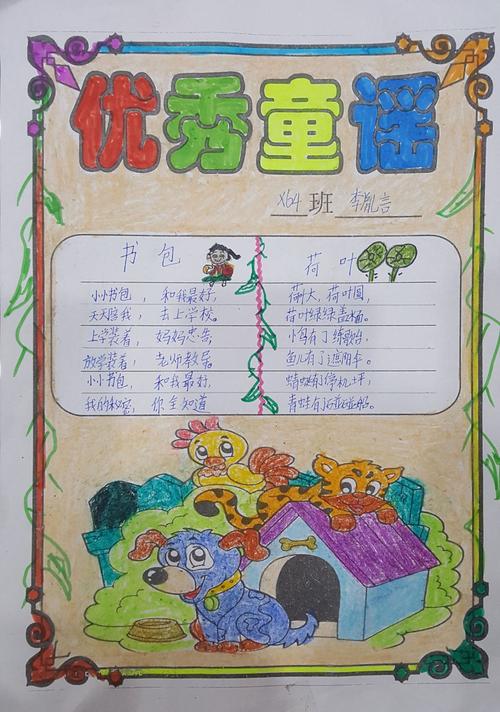 优秀童谣
X64 班 李胤言
书包
小小书包，和我最好，
天天陪我，去上学校。
上学装着，妈妈忠告
放学装着，老师教导。
小小书包，和我最好
我的秘密，你全知道
荷叶
荷叶大，荷叶圆，
荷叶绿绿盖池塘。
小鸟有了练歌台，
鱼儿有了遮阳伞。
蜻蜓有停机坪，
青蛙有